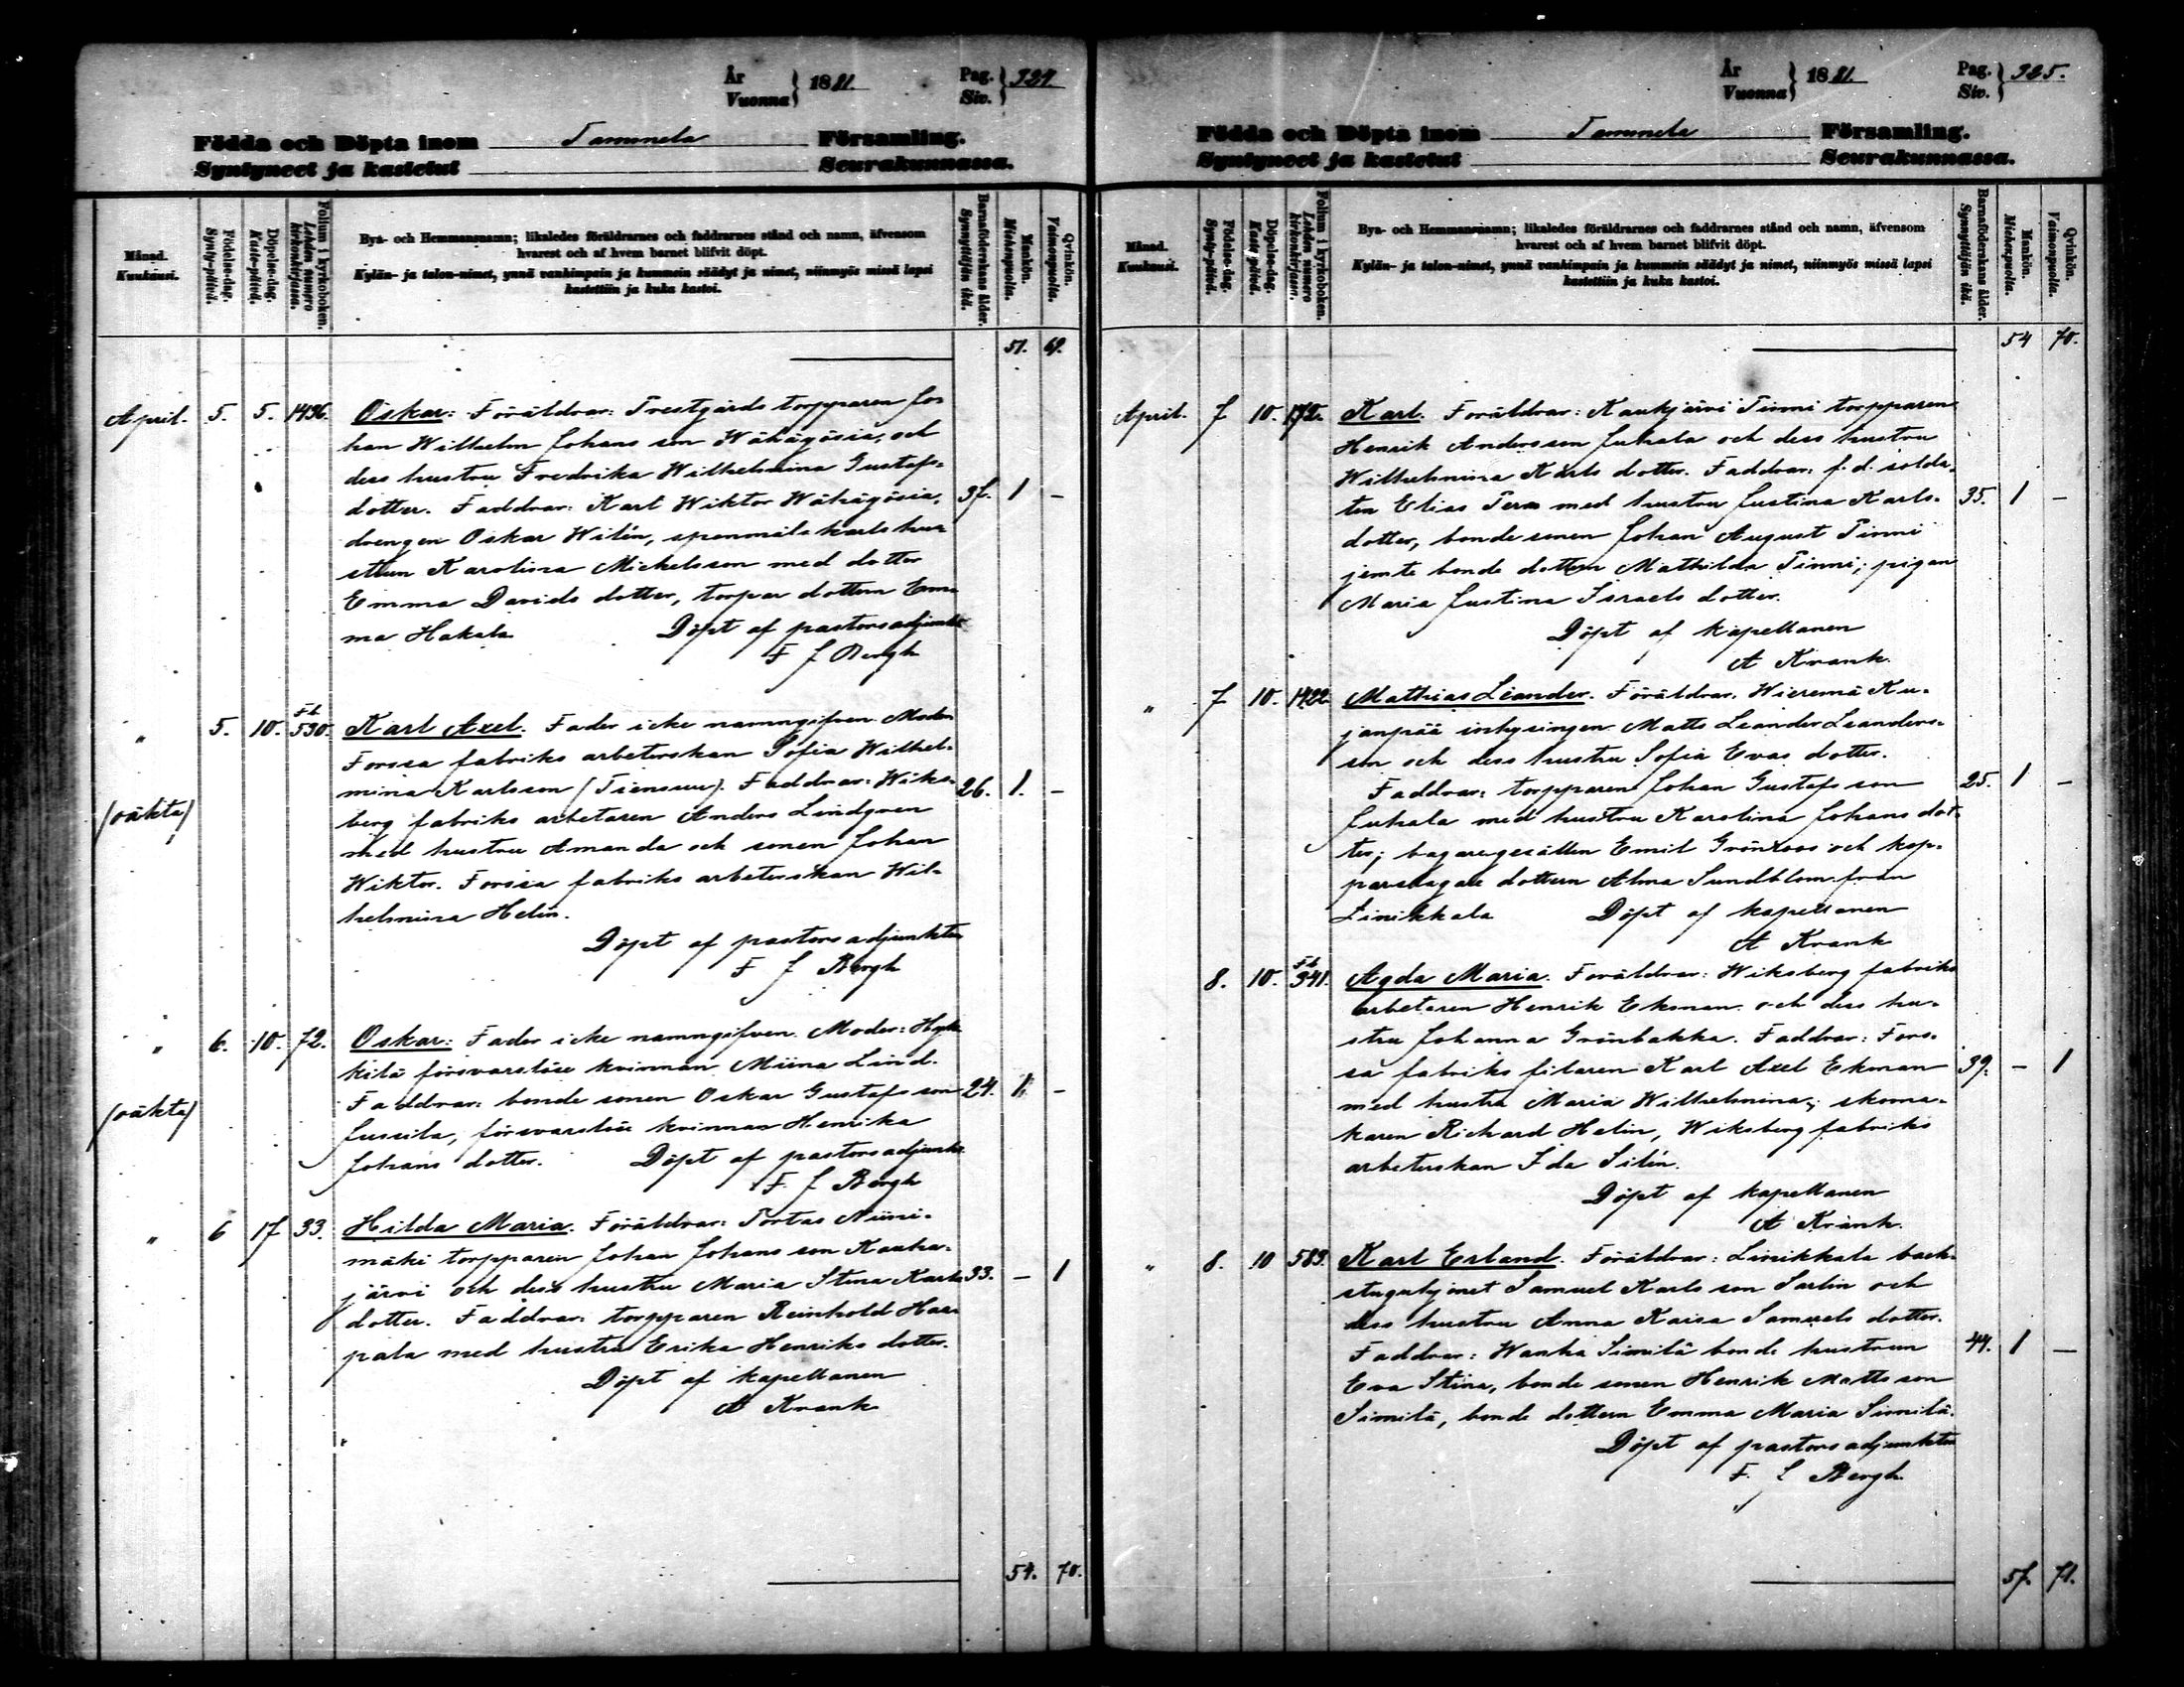 År
Vuonna } 1881.
Pag.
Siv. } 324.
Födda och Döpta inom Tammela Församling.
Syntyneet ja kastetut Seurakunnassa.
Månad.
Kuukausi.
Födelse-dag.
Synty-päivä.
Döpelse-dag.
Kaste-päivä.
Folium i kyrkoboken.
Lehden numero kirkonkirjassa.
Bya- och Hemmansnamn; likaledes föräldrarnes och faddrarnes stånd och namn, äfvensom
hvarest och af hvem barnet blifvit döpt.
Kylän- ja talon-nimet, ynnä vanhimpain ja kummein säädyt ja nimet, niinmyös missä lapsi
kastettiin ja kuka kastoi.
Barnaföderskans ålder.
Synnyttäjän ikä.
Mankön.
Miehenpuolia.
Qvinkön.
Vaimonpuolia.
51. 69.
April. 5. 5. 1436. Oskar: Föräldrar: Prestgårds torpparen Jo-
han Wilhelm Johans son Wähäyösiä, och
dess hustru Fredrika Wilhelmina Gustafs-
dotter. Faddrar: Karl Wiktor Wähäyösiä, 37. 1 –
drengen Oskar Wilén, spenmåls karls hu-
strun Karolina Michelsson med dotter
Emma Davids dotter, torpar dottern Em-
ma Hakala. Döpt af pastorsadjunkt
F J Bergh
" 5. 10. Fb 530. Karl Axel. Fader icke namngifven. Moder
Forssa fabriks arbeterskan Sofia Wilhel-
mina Karlsson (Tiensuu). Faddrar: Wiks- 26. 1. –
(oäkta) berg fabriks arbetaren Anders Lindgren
med hustru Amanda och sonen Johan
Wiktor. Forssa fabriks arbeterskan Wil-
helmina Helin.
Döpt af pastors adjunkten
F J Bergh
" 6. 10. 72. Oskar: Fader icke namngifven. Moder:
kilä försvarslösa kvinnan Miina Lind.
(oäkta) Faddrar: bonde sonen Oskar Gustafs son 24. 1. –
Jussila, försvarslösa kvinnan Henrika
Johans dotter. Döpt af pastorsadjunkt
F J Bergh
" 6 17 33. Hilda Maria. Föräldrar: Portas Niini-
mäki torpparen Johan Johans son Kauka-
järvi och dess hustru Maria Stina Karls 33. – 1
dotter. Faddrar: torpparen Reinhold Haa-
pala med hustru Erika Henriks dotter.
Döpt af kapellanen
A Krank
54. 70.
År
Vuonna } 1881.
Pag.
Siv. } 325.
Födda och Döpta inom Tammela Församling.
Syntyneet ja kastetut Seurakunnassa.
Månad.
Kuukausi.
Födelse-dag.
Synty-päivä.
Döpelse-dag.
Kaste-päivä.
Folium i kyrkoboken.
Lehden numero kirkonkirjassa.
Bya- och Hemmansnamn; likaledes föräldrarnes och faddrarnes stånd och namn, äfvensom
hvarest och af hvem barnet blifvit döpt.
Kylän- ja talon-nimet, ynnä vanhimpain ja kummein säädyt ja nimet, niinmyös missä lapsi
kastettiin ja kuka kastoi.
Barnaföderskans ålder.
Synnyttäjän ikä.
Mankön.
Miehenpuolia.
Qvinkön.
Vaimonpuolia.
54 70.
April. 7 10. 172. Karl. Föräldrar: Kaukjärvi Pinni torpparen
Henrik Andersson Juhala och dess hustru
Wilhelmina Karls dotter. Faddrar: f. d. solda-
ten Elias Term med hustru Justina Karls- 35. 1 –
dotter, bonde sonen Johan August Pinni
jemte bonde dottern Mathilda Pinni; pigan
Maria Justina Israels dotter.
Döpt af kapellanen
A Krank.
" 7 10. 1422. Mathias Leander. Föräldrar: Wieremä Ku-
janpää inhysingen Matts Leander Leanders-
son och dess hustru Sofia Evas dotter.
Faddrar: torpparen Johan Gustafs son 25. 1 –
Juhala med hustru Karolina Johans dot-
ter; bagaregesällen Emil Grönroos och kop-
parslagare dottern Alma Sundblom från
Linikkala Döpt af kapellanen
A Krank
8. 10. Fb 341. Agda Maria. Föräldrar: Wiksberg fabriks
arbetaren Henrik Ekman och dess hu-
stru Johanna Grönbakka. Faddrar: Fors-
sa fabriks filaren Karl Axel Ekman 39. – 1
med hustru Maria Wilhelmina; skoma-
karen Richard Helin, Wiksberg fabriks
arbeterskan Ida Silén.
Döpt af kapellanen
A Krank.
" 8. 10 583. Karl Erland. Föräldrar: Linikkala back-
stuguhjonet Samuel Karls son Sarlin och
dess hustru Anna Kaisa Samuels dotter.
Faddrar: Wanha Simitä bonde hustrun 44. 1 –
Eva Stina, bonde sonen Henrik Matts son
Simitä, bonde dottern Emma Maria Simitä.
Döpt af pastors adjunkten
F. J Bergh
57. 71.